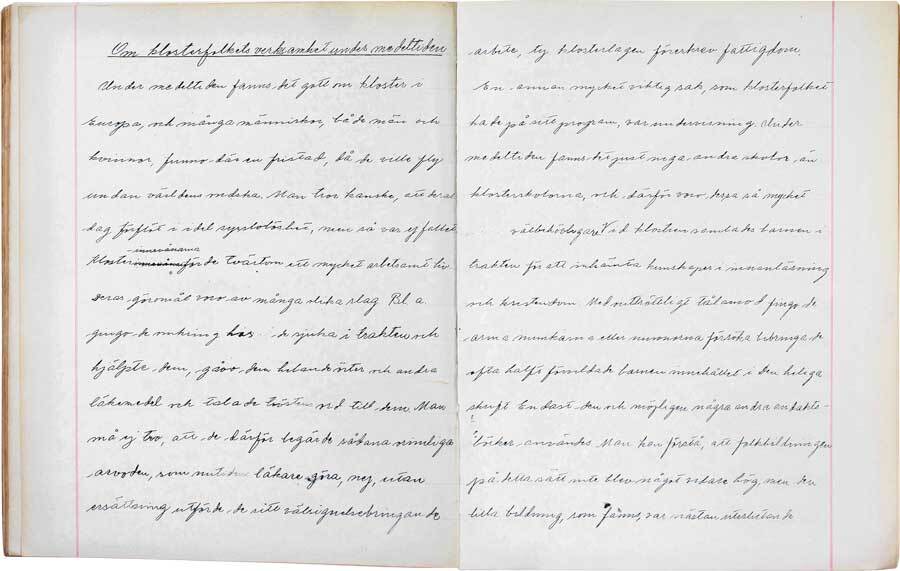 Om klosterfolkets verksamhet under medeltiden
Under medeltiden fanns det gott om kloster i
Europa, och många människor, både män och
kvinnor, funno där en fristad, då de ville fly
undan världens ondska. Man tror kanske, att deras
dag förflöt i idel sysslolöshet, men så var ej fallet
Klosterinnevånarna förde tvärtom ett mycket arbetsamt liv
Deras göromål voro av många olika slag Bl. a.
gingo de omkring hos de sjuka i trakten och
hjälpte dem, gåvo dem helande örter och andra
läkemedel och talade tröstens ord till dem. Man
må ej tro, att de därför begärde sådana orimliga
arvoden, som nutidens läkare göra, nej, utan
ersättning utförde de sitt välsignelsebringande
arbete, ty klosterlagen föreskrev fattigdom.
En annan mycket viktig sak, som klosterfolket
hade på sitt program, var undervisning. Under
medeltiden fanns det just inga andra skolor än
klosterskolorna, och därför voro dessa så mycket
välbehövligare. Vid klostren samlades barnen i
trakten för att inhämta kunskaper i innanläsning
och kristendom. Med outtröttligt tålamod fingo de
arma munkarna eller nunnorna försöka bibringa de
ofta halft förvildade barnen innehållet i den heliga
skrift. Endast den och möjligen några andra andakts-
böcker användes. Man kan förstå, att folkbildningen
på detta sätt inte blev något vidare hög, men den
lilla bildning, som fanns, var nästan uteslutande